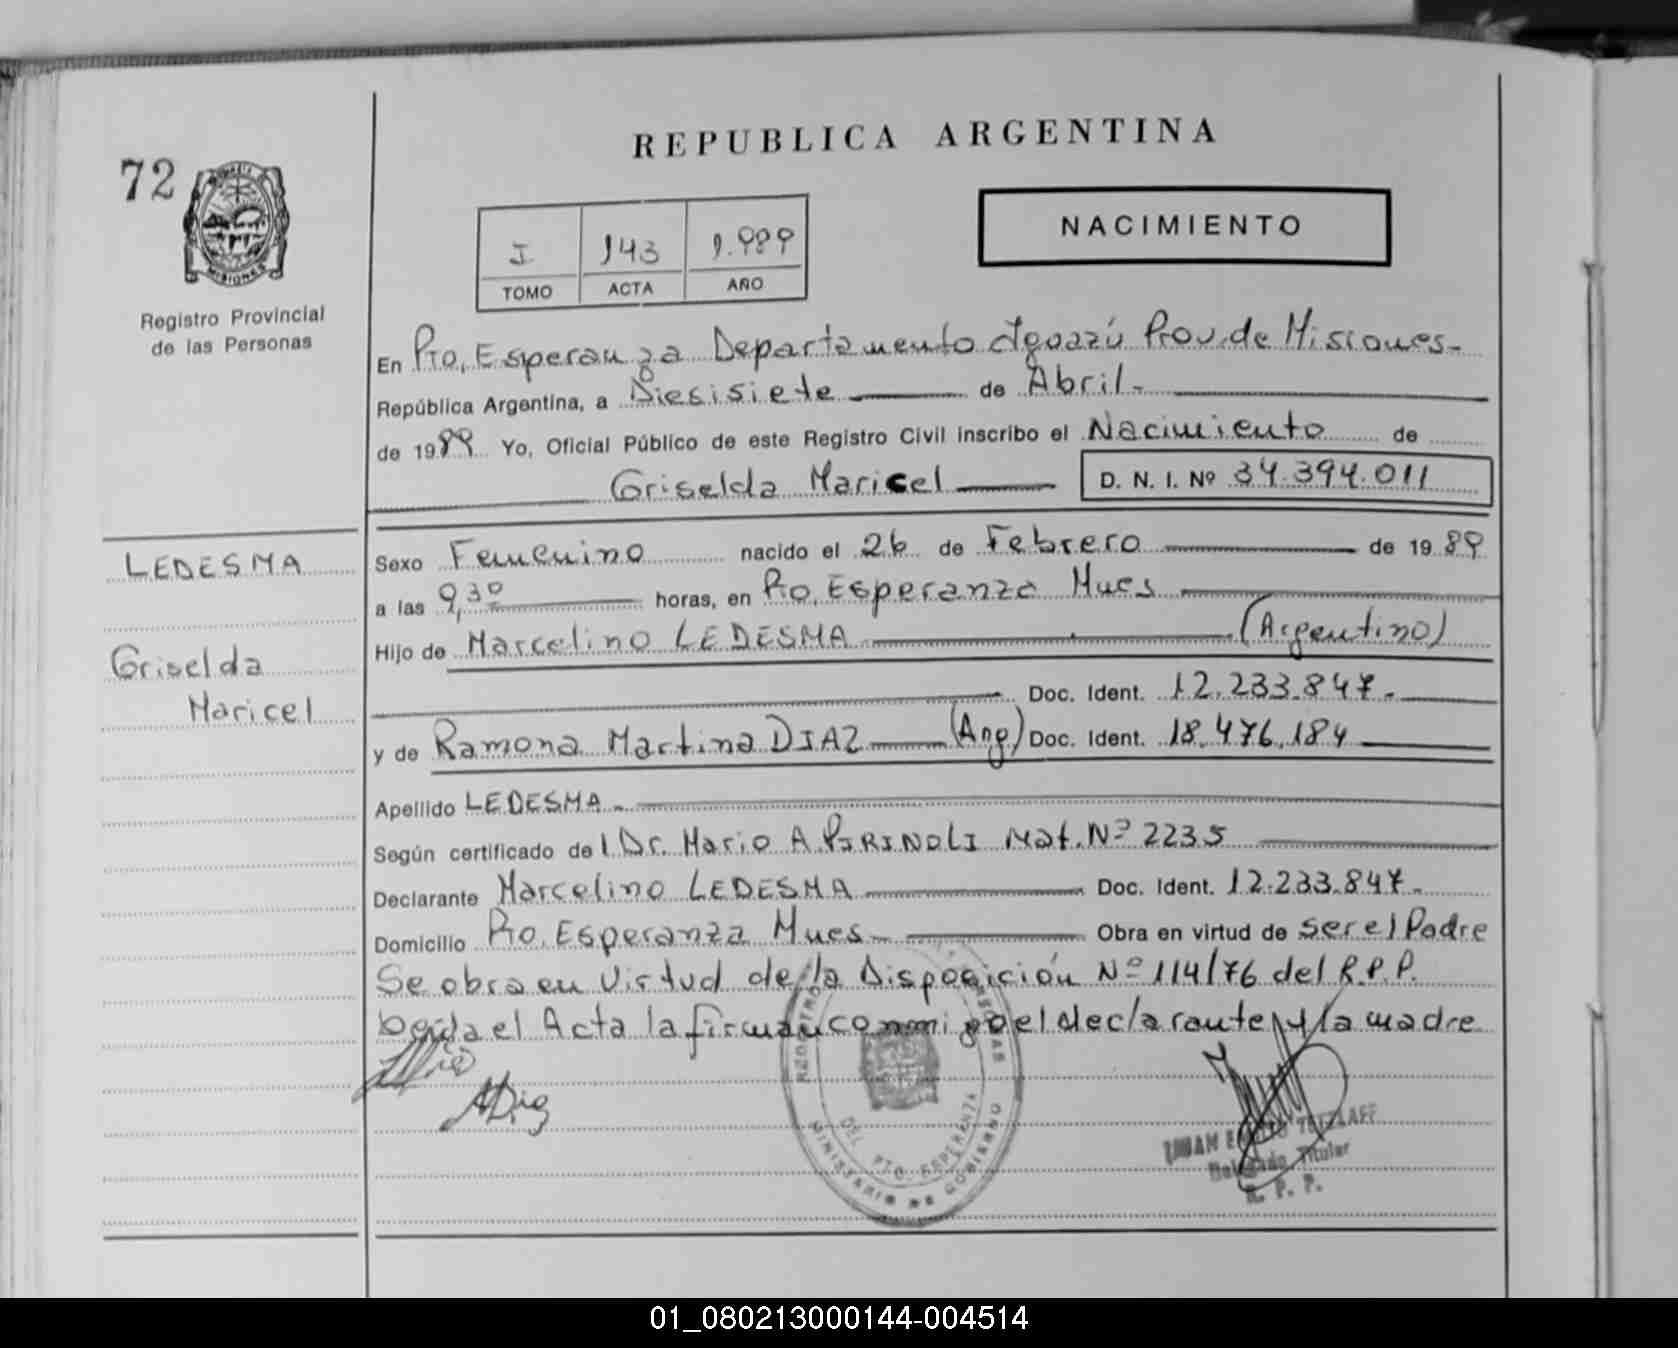 REPUBLICA ARGENTINA
72
MISIONES
Registro Provincial
de las Personas
I 143 1.989
TOMO ACTA AÑO
NACIMIENTO
En Pto. Esperanza Departamento Iguazú Prov. de Misiones.
República Argentina, a Diesisiete de Abril.
de 1989 Yo, Oficial Público de este Registro Civil inscribo el Nacimiento de
Griselda Maricel D. N. I. Nº 34.394.011
LEDESMA
Griselda
Maricel
Sexo Femenino nacido el 26 de Febrero de 1989
a las 9,30 horas, en Pto. Esperanza Mnes
Hijo de Marcelino LEDESMA (Argentino)
Doc. Ident. 12.233.847.
y de Ramona Martina DIAZ (Arg.) Doc. Ident. 18.476.184
Apellido LEDESMA.
Según certificado del Dr. Mario A. PIRINOLI Mat. Nº 2235
Declarante Marcelino LEDESMA Doc. Ident. 12.233.847.
Domicilio Pto. Esperanza Mnes Obra en virtud de ser el Padre
Se obra en Virtud de la Disposición Nº 114/76 del R.P.P.
Leida el Acta la firman conmigo el declarante y la madre
DEL. PTO. ESPERANZA
MINISTERIO DE GOBIERNO
JUAN TETZLAFF
Delegado Titular
R. P. P.
01_080213000144-004514